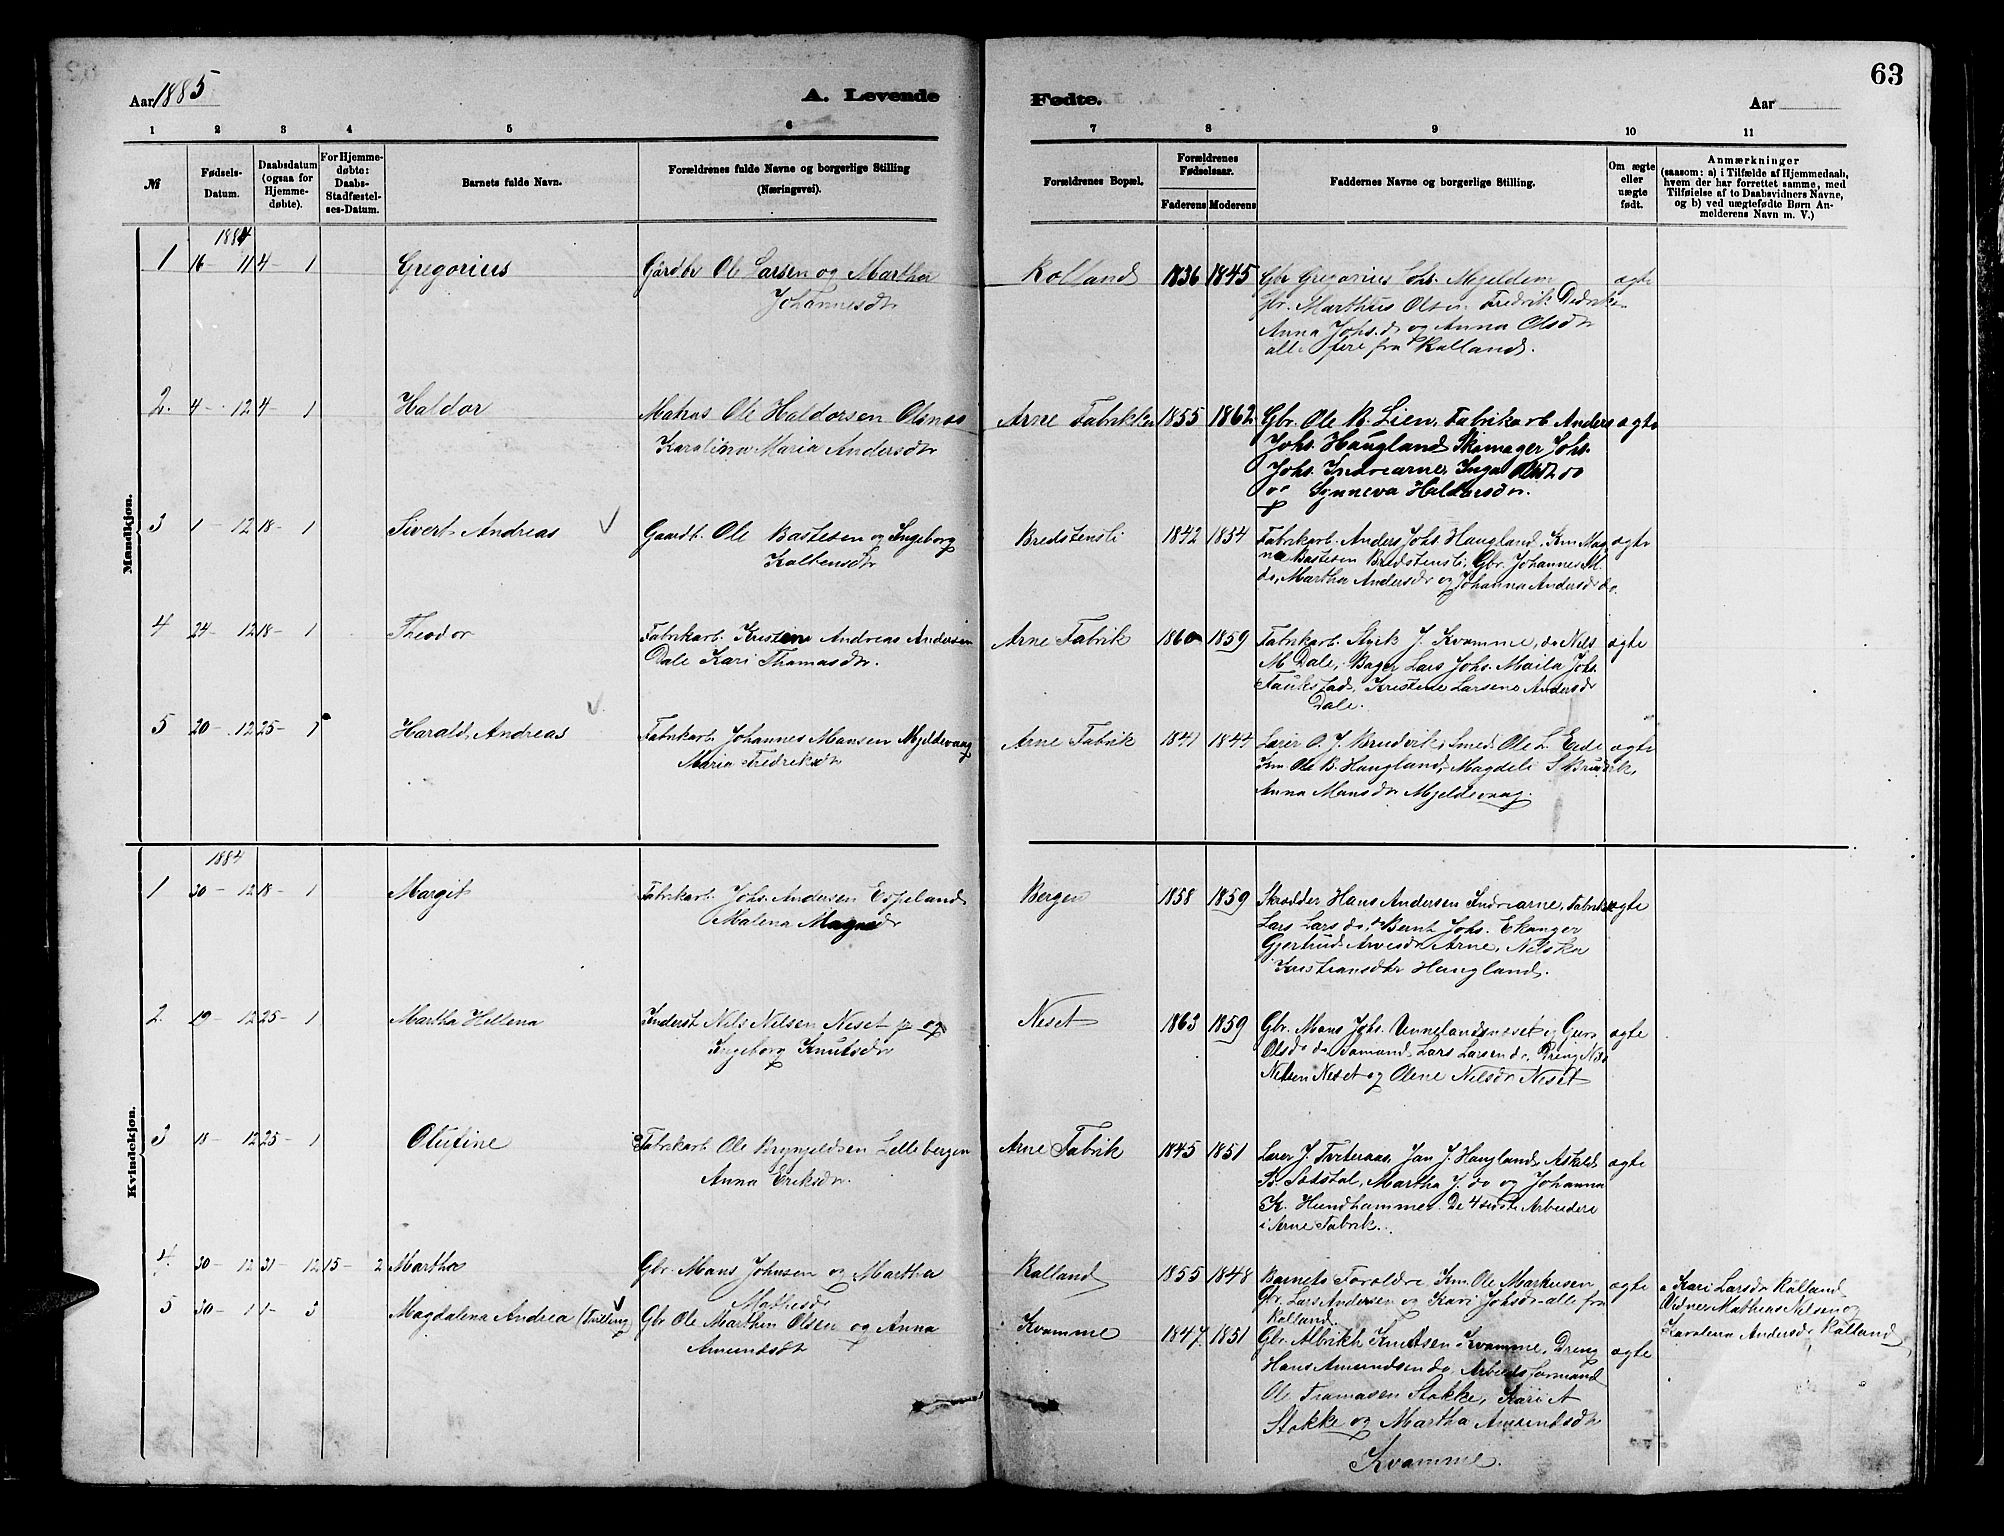 63
Aar 1885
A. Levende
Fødte.
Aar
1 2 3 4 5 6 7 8 9 10 11
№
Fødsels-
Datum.
Daabsdatum
(ogsaa for
Hjemme-
døbte).
For Hjemme-
døbte:
Daabs-
Stadfæstel-
ses-Datum.
Barnets fulde Navn.
Forældrenes fulde Navne og borgerlige Stilling
(Næringsvei).
Forældrenes Bopæl.
Forældrenes
Fødselsaar.
Faderens
Moderens
Faddernes Navne og borgerlige Stilling.
Om ægte
eller
uægte
født.
Anmærkninger
(saasom: a) i Tilfælde af Hjemmedaab,
hvem der har forrettet samme, med
Tilføielse af to Daabsvidners Navne,
og b) ved uægtefødte Børn An-
melderens Navn m. V.)
Mandkjøn.
1884
1 16 - 11 4 - 1 Gregorius
Gårdbr Ole Larsen og Martha
Johannesdr
Rolland 1836 1845
Gbr Gregorius Johs. Mjeldem
Gbr. Marthus Olsen Fredrik Didriks
Anna Johs.dr og Anna Olsdr
alle fere fra Rolland.
ægte
2. 4 - 12 4 - 1 Haldor
Matros Ole Haldorsen Olsnes
Karolina Maria Andersdr
Arne Fabrikker 1855 1862
Gbr. Ole B. Lien, Fabrikarb Anders
Johs. Haugland Skomager Johs.
Johs. Indrearne, Inga Olsd do
og Synneva Haldorsdr.
ægte
3 1 - 12 18 - 1 Sivert Andreas
Gaardb. Ole Bastesen og Ingeborg
Koltensdr
Bredstensli 1842 1854
Fabrikarb. Anders Johs. Haugland, Km Mag
na Bastesen Bredstensli, Gbr. Johannes M.
do, Martha Andersdr og Johanna Andersdr do.
ægte
4 24 - 12 18 - 1 Theodor
Fabrikarb. Kristen Andreas Andersen
Dale Kari Thomasdr.
Arne Fabrik 1860 1859
Fabrikarb. Styrk J. Kvamme, do Nils
M Dale, Bager Lars Johs. Maila Johs.
Taukstad, Kristene Larsene Andersdr
Dale.
ægte
5 20 - 12 25 - 1 Harald Andreas
Fabrikarb. Johannes Mansen Mjeldevaag
Maria Fredriksdr
Arne Fabrik 1841 1844
Lærer O. J. Brudvik, Smed Ole L. Eide
Km. Ole B. Haugland, Magdeli S Brudvik,
Anna Mansdr Mjeldevaag.
ægte
Kvindekjøn.
1884
1 30 - 12 18 - 1 Margit
Fabrikarb. Johs. Andersen Espeland
Malena Magnedr
Bergen 1858 1859
Skrædder Hans Andersen Indrearne, Fabrikar
Lars Lars do, Bernt Johs. Ekanger
Gjertrud Arnesdr Arne, Nilska
Kristiansdtr Haugland.
ægte
2. 19 - 12 25 - 1 Martha Hellena
Inderst Nils Nilsen Neset p og
Ingeborg Knutsdr
Neset 1863 1859
Gbr. Mans Johs. Unnelandsneset, Guri
Olsdr do Samand Lars Larsen do, Dreng Nils
Nilsen Neset og Olene Nilsdr Neset
ægte
3 18 - 12 25 - 1 Olufine
Fabrikarb Ole Brynjeldsen Lillebergen
Anna Eriksdr.
Arne Fabrik 1845 1851
Lærer J. Tviteraas, Jan J. Haugland, Askild
B. Sødstal, Martha J. do og Johanna
K. Hundhammer. De 4 sidste Arbeidere
i Arne Fabrik.
ægte
4. 30 - 12 31 - 12 15 - 2 Martha
Gbr. Mans Johnsen og Martha
Mathisdr
Rolland 1855 1848
Barnets Forældre, Km. Ole Markusen
Gbr. Lars Andersen og Kari Johsdr alle fra
Rolland.
ægte
a Kari Larsdr Rolland
Vidner Mathias Nilsen og
Karolina Andersdr Rolland
5 30 - 1 1 - 3 Magdalena Andrea (Tvilling)
Gbr Ole Marthin Olsen og Anna
Amundsdr
Kvamme 1847. 1851
Gbr. Albrikh Knutsen Kvamme, Dreng
Hans Amundsen do, Arbeidsformand
Ole Tramasen Stokke, Kari A
Stokke og Martha Amundsdr
Kvamme.
ægte